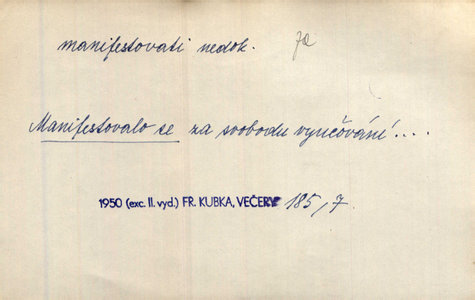 manifestovati nedok. za
Manifestovalo se za svobodu vyučování!...
1950 (exc. II. vyd.) FR. KUBKA, VEČERY 185/7.